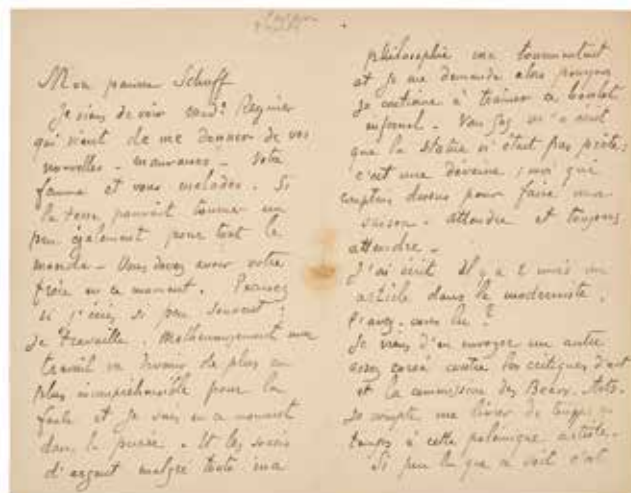 Mon pauvre Schuff
Je viens de voir mad? Regnier
qui vient de me donner de vos
nouvelles - mauvaises - Votre
femme et vous malades. Si
la roue pouvait tourner un
peu également pour tout le
monde - Vous devez avoir votre
frère en ce moment.
si j'écris si peu souvent;
Je travaille. Malheureusement mon
travail va devenir de plus en
plus incompréhensible pour la
foule et je suis en ce moment
dans la purée. Et les soucis
d'argent malgré toute ma
philosophie me tourmentent
et je me demande alors pourquoi
je continue à traîner ce boulet
infernal. Van Gog m'a écrit
que la statue n'était pas prête;
c'est une déveine; moi qui
comptais dessus pour faire ma
saison. Attendre et toujours
attendre -
J'ai écrit il y a 2 mois un
article dans le moderniste.
l'avez-vous lu?
Je viens d'en envoyer un autre
assez corsé contre les critiques d'art
et la commission des Beaux-Arts.
Je compte me livrer de temps en
temps à cette polémique artiste.
Si peu lu que ce soit c'est